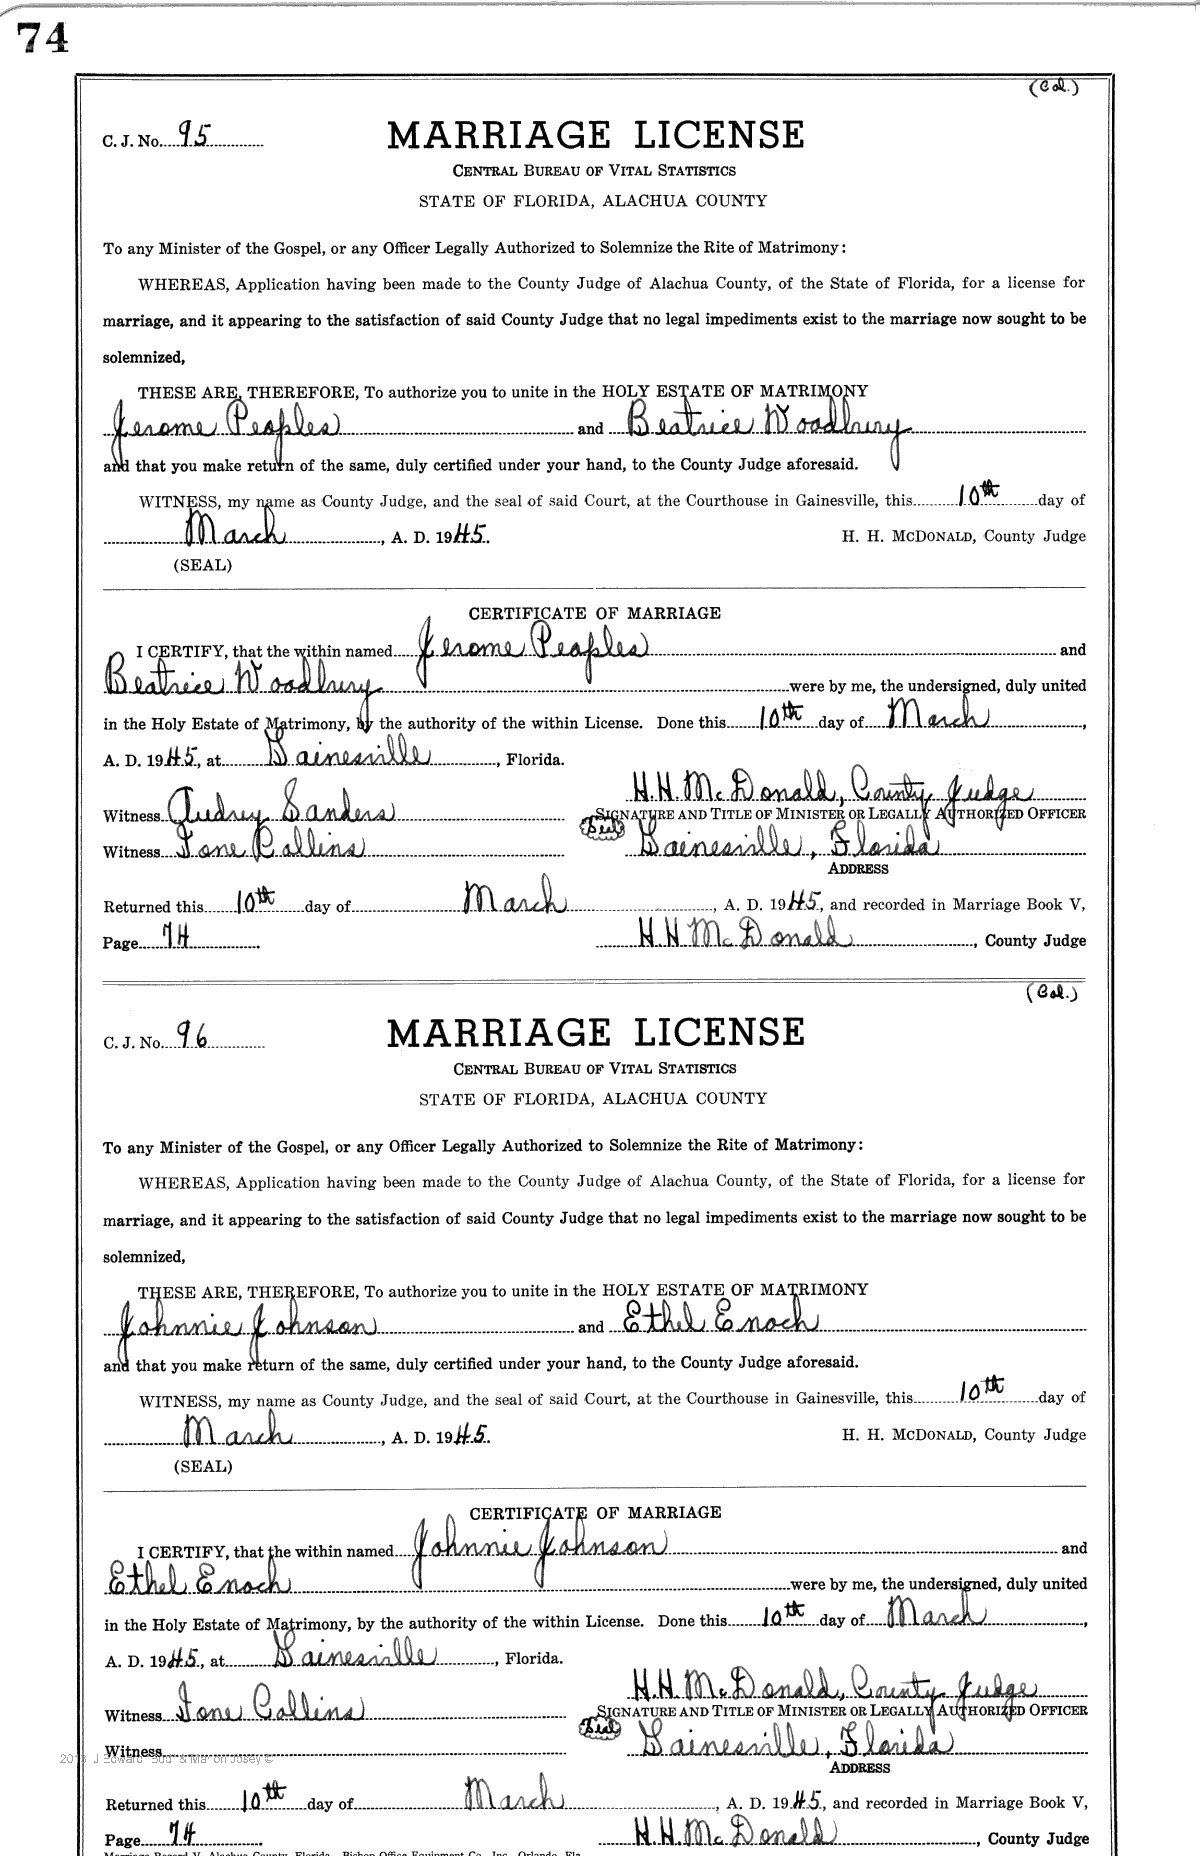 74
(Col.)
C. J. No. 95
MARRIAGE LICENSE
CENTRAL BUREAU OF VITAL STATISTICS
STATE OF FLORIDA, ALACHUA COUNTY
To any Minister of the Gospel, or any Officer Legally Authorized to Solemnize the Rite of Matrimony:
WHEREAS, Application having been made to the County Judge of Alachua County, of the State of Florida, for a license for
marriage, and it appearing to the satisfaction of said County Judge that no legal impediments exist to the marriage now sought to be
solemnized,
THESE ARE, THEREFORE, To authorize you to unite in the HOLY ESTATE OF MATRIMONY
Jerome Peoples and Beatrice Woodbury
and that you make return of the same, duly certified under your hand, to the County Judge aforesaid.
WITNESS, my name as County Judge, and the seal of said Court, at the Courthouse in Gainesville, this 10th day of
March, A. D. 1945. H. H. MCDONALD, County Judge
(SEAL)
CERTIFICATE OF MARRIAGE
I CERTIFY, that the within named Jerome Peoples and
Beatrice Woodbury were by me, the undersigned, duly united
in the Holy Estate of Matrimony, by the authority of the within License. Done this 10th day of March,
A. D. 1945, at Gainesville, Florida.
H. H. McDonald, County Judge
Witness Audrey Sanders SIGNATURE AND TITLE OF MINISTER OR LEGALLY AUTHORIZED OFFICER
(Seal)
Witness Ione Collins Gainesville, Florida
ADDRESS
Returned this 10th day of March, A. D. 1945, and recorded in Marriage Book V,
Page 74 H. H. McDonald, County Judge
(Col.)
C. J. No. 96
MARRIAGE LICENSE
CENTRAL BUREAU OF VITAL STATISTICS
STATE OF FLORIDA, ALACHUA COUNTY
To any Minister of the Gospel, or any Officer Legally Authorized to Solemnize the Rite of Matrimony:
WHEREAS, Application having been made to the County Judge of Alachua County, of the State of Florida, for a license for
marriage, and it appearing to the satisfaction of said County Judge that no legal impediments exist to the marriage now sought to be
solemnized,
THESE ARE, THEREFORE, To authorize you to unite in the HOLY ESTATE OF MATRIMONY
Johnnie Johnson and Ethel Enoch
and that you make return of the same, duly certified under your hand, to the County Judge aforesaid.
WITNESS, my name as County Judge, and the seal of said Court, at the Courthouse in Gainesville, this 10th day of
March, A. D. 1945. H. H. MCDONALD, County Judge
(SEAL)
CERTIFICATE OF MARRIAGE
I CERTIFY, that the within named Johnnie Johnson and
Ethel Enoch were by me, the undersigned, duly united
in the Holy Estate of Matrimony, by the authority of the within License. Done this 10th day of March,
A. D. 1945, at Gainesville, Florida.
H. H. McDonald, County Judge
Witness Ione Collins SIGNATURE AND TITLE OF MINISTER OR LEGALLY AUTHORIZED OFFICER
(Seal)
Witness Gainesville, Florida
ADDRESS
Returned this 10th day of March, A. D. 1945, and recorded in Marriage Book V,
Page 74 H. H. McDonald, County Judge
Marriage Record V, Alachua County, Florida. Bishop Office Equipment Co., Inc., Orlando, Fla.